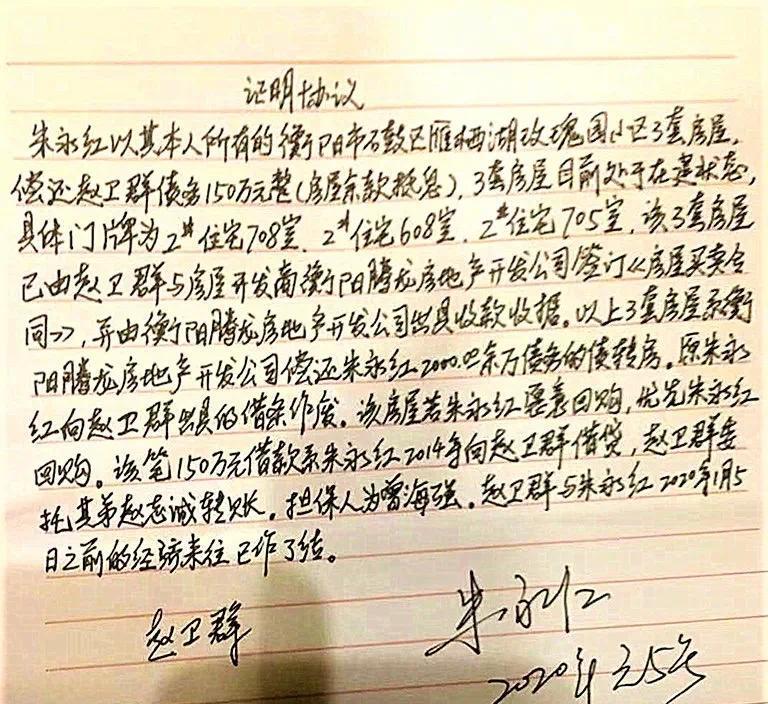 证明协议
朱永红以其本人所有的衡阳市石鼓区雁栖湖玫瑰园小区3套房屋,
偿还赵卫群债务150万元整(房屋余款抵息),3套房屋目前处于在建状态,
具体门牌为2#住宅708室、2#住宅608室、2#住宅705室,该3套房屋
已由赵卫群与房屋开发商衡阳腾龙房地产开发公司签订《房屋买卖合
同》,并由衡阳腾龙房地产开发公司出具收款收据。以上3套房屋系衡
阳腾龙房地产开发公司偿还朱永红2000.余万债务的债转房。原朱永
红向赵卫群出具的借条作废。该房屋若朱永红愿意回购,优先朱永红
回购。该笔150万元借款系朱永红2014年向赵卫群借贷,赵卫群委
托其弟赵志诚转账。担保人为曾海强。赵卫群与朱永红2020年1月5
日之前的经济来往已作了结。
赵卫群
朱永红
2020年元5号